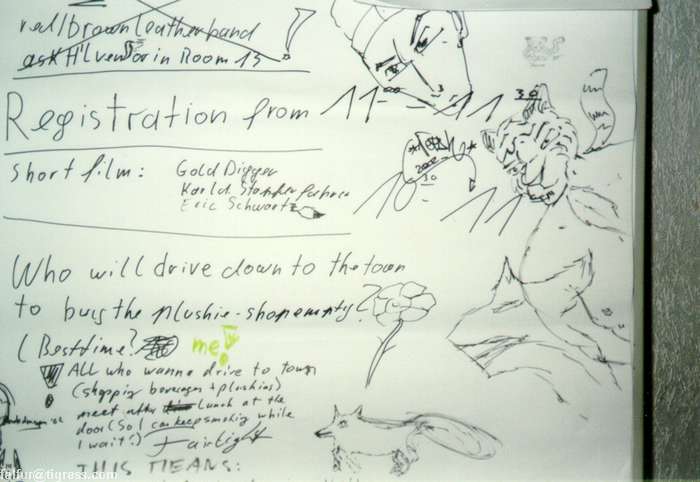 red/brown leatherband
ask H'lven or in Room 13
Registration from 11-11 30
short film: Gold Digger
Karld
Eric Schwartz
10- 11
Who will drive down to the town
to buy the plushie-shop empty?
(Best time? me!
! ALL who wanna drive to town
(shopping beverages + plushies)
meet after lunch at the
door (So I can keep smoking while
I wait!) Fairlight
THIS MEANS:
falfur@tigress.com